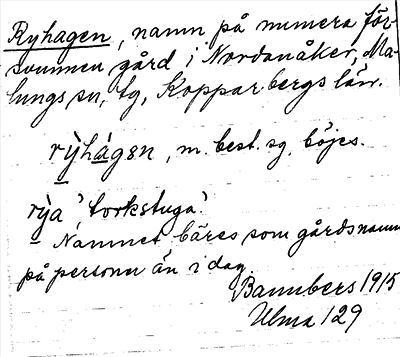 Ryhagen, namn på numera för-
svunnen gård i Nordanåker, Ma-
lungs sn, tg, Kopparbergs län.
rỳhàgen, m. best. sg. böjes.
rỳa 'torkstuga'.
Namnet bäres som gårdsnamn
på personer än i dag.
Bannbers 1915
Ulma 129